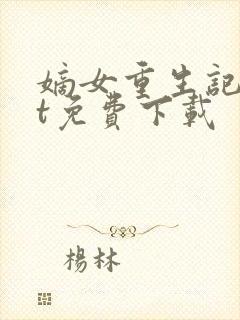 嫡女重生記
t免費下載
楊林